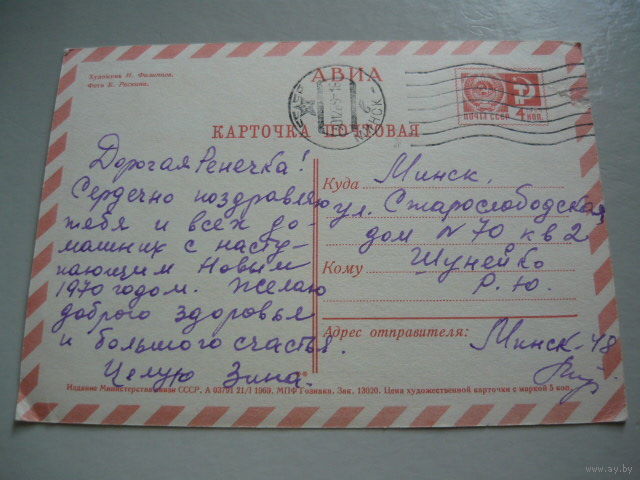 Художник Н. Филиппов.
Фото Е. Рясина.
АВИА
КАРТОЧКА ПОЧТОВАЯ
МИНСК
ПОЧТА СССР
4 КОП.
Дорогая Ренечка!
Сердечно поздравляю
тебя и всех до-
машних с насту-
пающим Новым
1970 годом. Желаю
доброго здоровья
и большого счастья.
Целую Зина.
Куда Минск.
ул. Старослободская
дом N 70 кв 2
Кому Шунейко
Р. Ю.
Адрес отправителя: Минск-48
Издание Министерства связи СССР. А 03791 21/I 1969. МПФ Гознака. Зак. 13020. Цена художественной карточки с маркой 5 коп.
www.ay.by